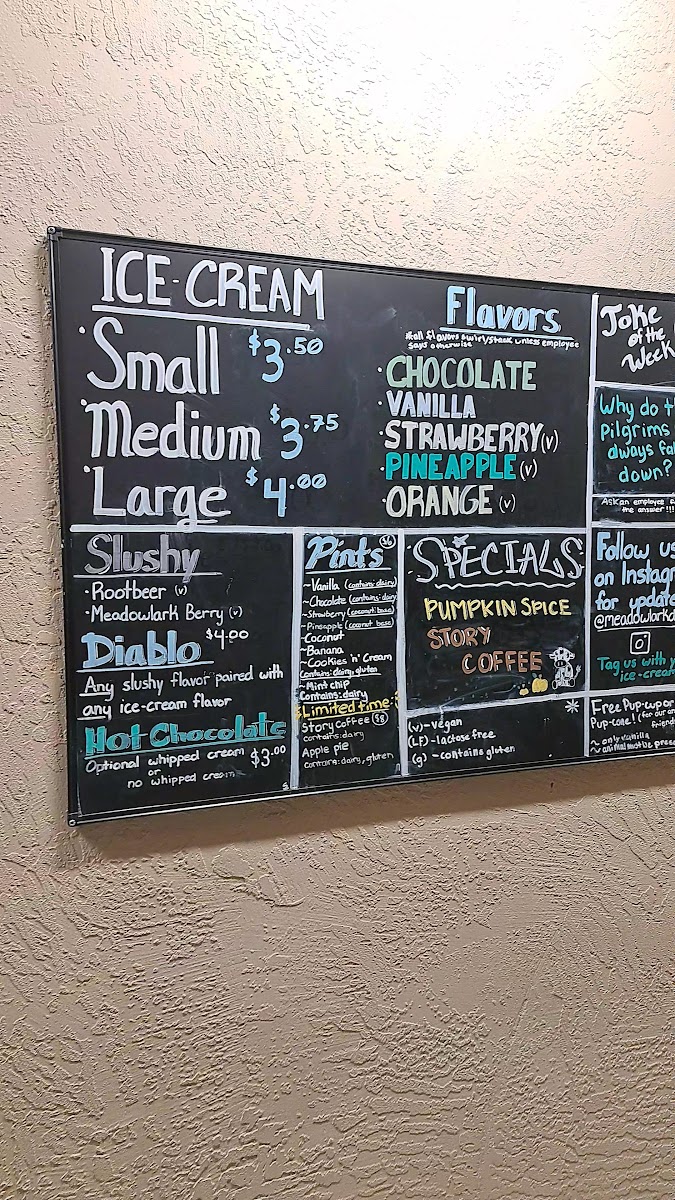 ICE-CREAM
· Small $3.50
· Medium $3.75
· Large $4.00
Flavors
*all flavors swirl/stack unless employee
says otherwise
· CHOCOLATE
· VANILLA
· STRAWBERRY (v)
· PINEAPPLE (v)
· ORANGE (v)
Joke
of the
Week
Why do t
Pilgrims
always fal
down?
Ask an employee f
the answer!!!
Slushy
· Rootbeer (v)
· Meadowlark Berry (v)
$4.00
Diablo
Any slushy flavor paired with
any ice-cream flavor
Hot Chocolate
Optional whipped cream $3.00
or
no whipped cream
Pints $6
~Vanilla (contains: dairy)
~Chocolate (contains: dairy
~Strawberry (coconut base)
~Pineapple (coconut base)
~Coconut
~Banana
~Cookies 'n' Cream
Contains: dairy, gluten
~Mint chip
Contains: dairy
Limited time:
Story Coffee $8
contains: dairy
Apple pie
contains: dairy, gluten
SPECIALS
PUMPKIN SPICE
STORY
COFFEE
(v) - vegan
(LF) - lactose free
(g) - contains gluten
Follow us
on Instagr
for update
@meadowlarkd
Tag us with y
ice-cream
Free Pup-cup or
Pup-cone! (for our an
friend
~ only vanilla
~ animal must be prese